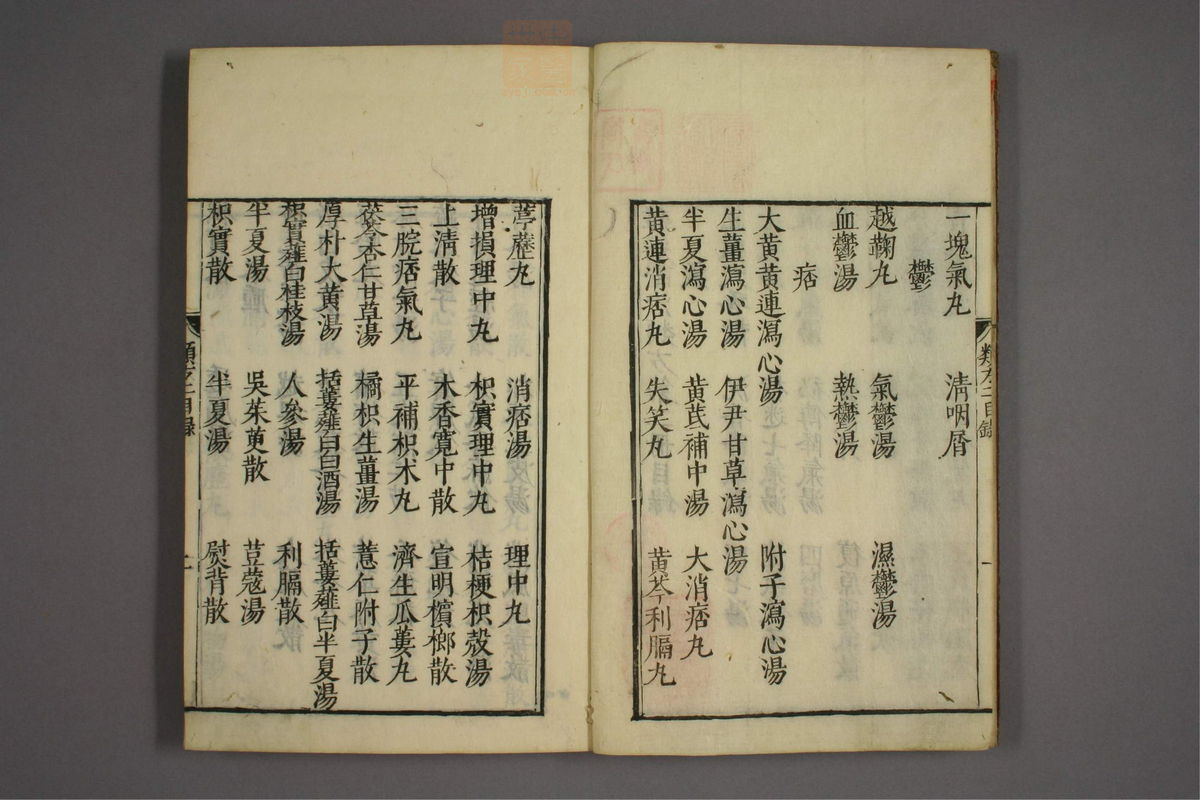 一塊氣丸 清咽屑
鬱
越鞠丸 氣鬱湯 濕鬱湯
血鬱湯 熱鬱湯
痞
大黃黃連瀉心湯 附子瀉心湯
生薑瀉心湯 伊尹甘草瀉心湯
半夏瀉心湯 黃芪補中湯 大消痞丸
黃連消痞丸 失笑丸 黃芩利膈丸
葶藶丸 消痞湯 理中丸
增損理中丸 枳實理中丸 桔梗枳殼湯
上清散 木香寬中散 宣明檳榔散
三脘痞氣丸 平補枳朮丸 濟生瓜蔞丸
茯苓杏仁甘草湯 橘枳生薑湯 薏仁附子散
厚朴大黃湯 括蔞薤白白酒湯 括蔞薤白半夏湯
枳實薤白桂枝湯 人參湯 利膈散
半夏湯 吳茱萸散 荳蔻湯
枳實散 半夏湯 熨背散
類方二目錄